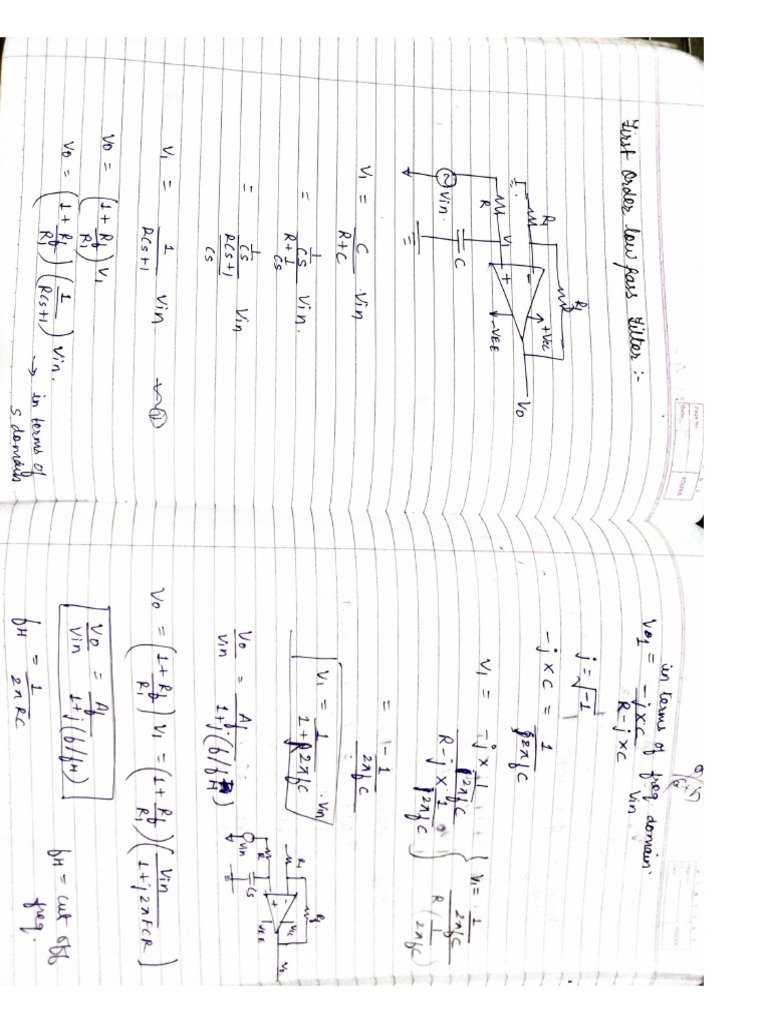 First Order low pass Filter :-
R1
Rf
+Vcc
-VEE
Vo
V1
R
C
Vin.
V1 = C/(R+C) Vin
= (1/CS)/(R+1/CS) Vin.
= (1/CS)/((RCS+1)/CS) Vin
V1 = 1/(RCS+1) Vin → ①
Vo = (1+Rf/R1) V1
Vo = (1+Rf/R1) (1/(RCS+1)) Vin.
→ in terms of
S domain
in terms of freq domain.
Vo1 = -jXC/(R-jXC) Vin
j = √-1
-jXC = 1/(j2πfC)
V1 = (-j × 1/(j2πfC))/(R-j × 1/(j2πfC))
V1 = (1/(2πfC))/(R(1/(2πfC)))
= -1/(2πfC)
V1 = 1/(1+R2πfC) . Vin
Vo/Vin = Af/(1+j(f/fH))
R1
Rf
Vcc
VEE
Vo
Vin
R
CS
Vo = (1+Rf/R1) V1 = (1+Rf/R1) (Vin/(1+j2πFCR))
Vo/Vin = Af/(1+j(f/fH))
fH = 1/(2πRC)
fH = cut off
freq.